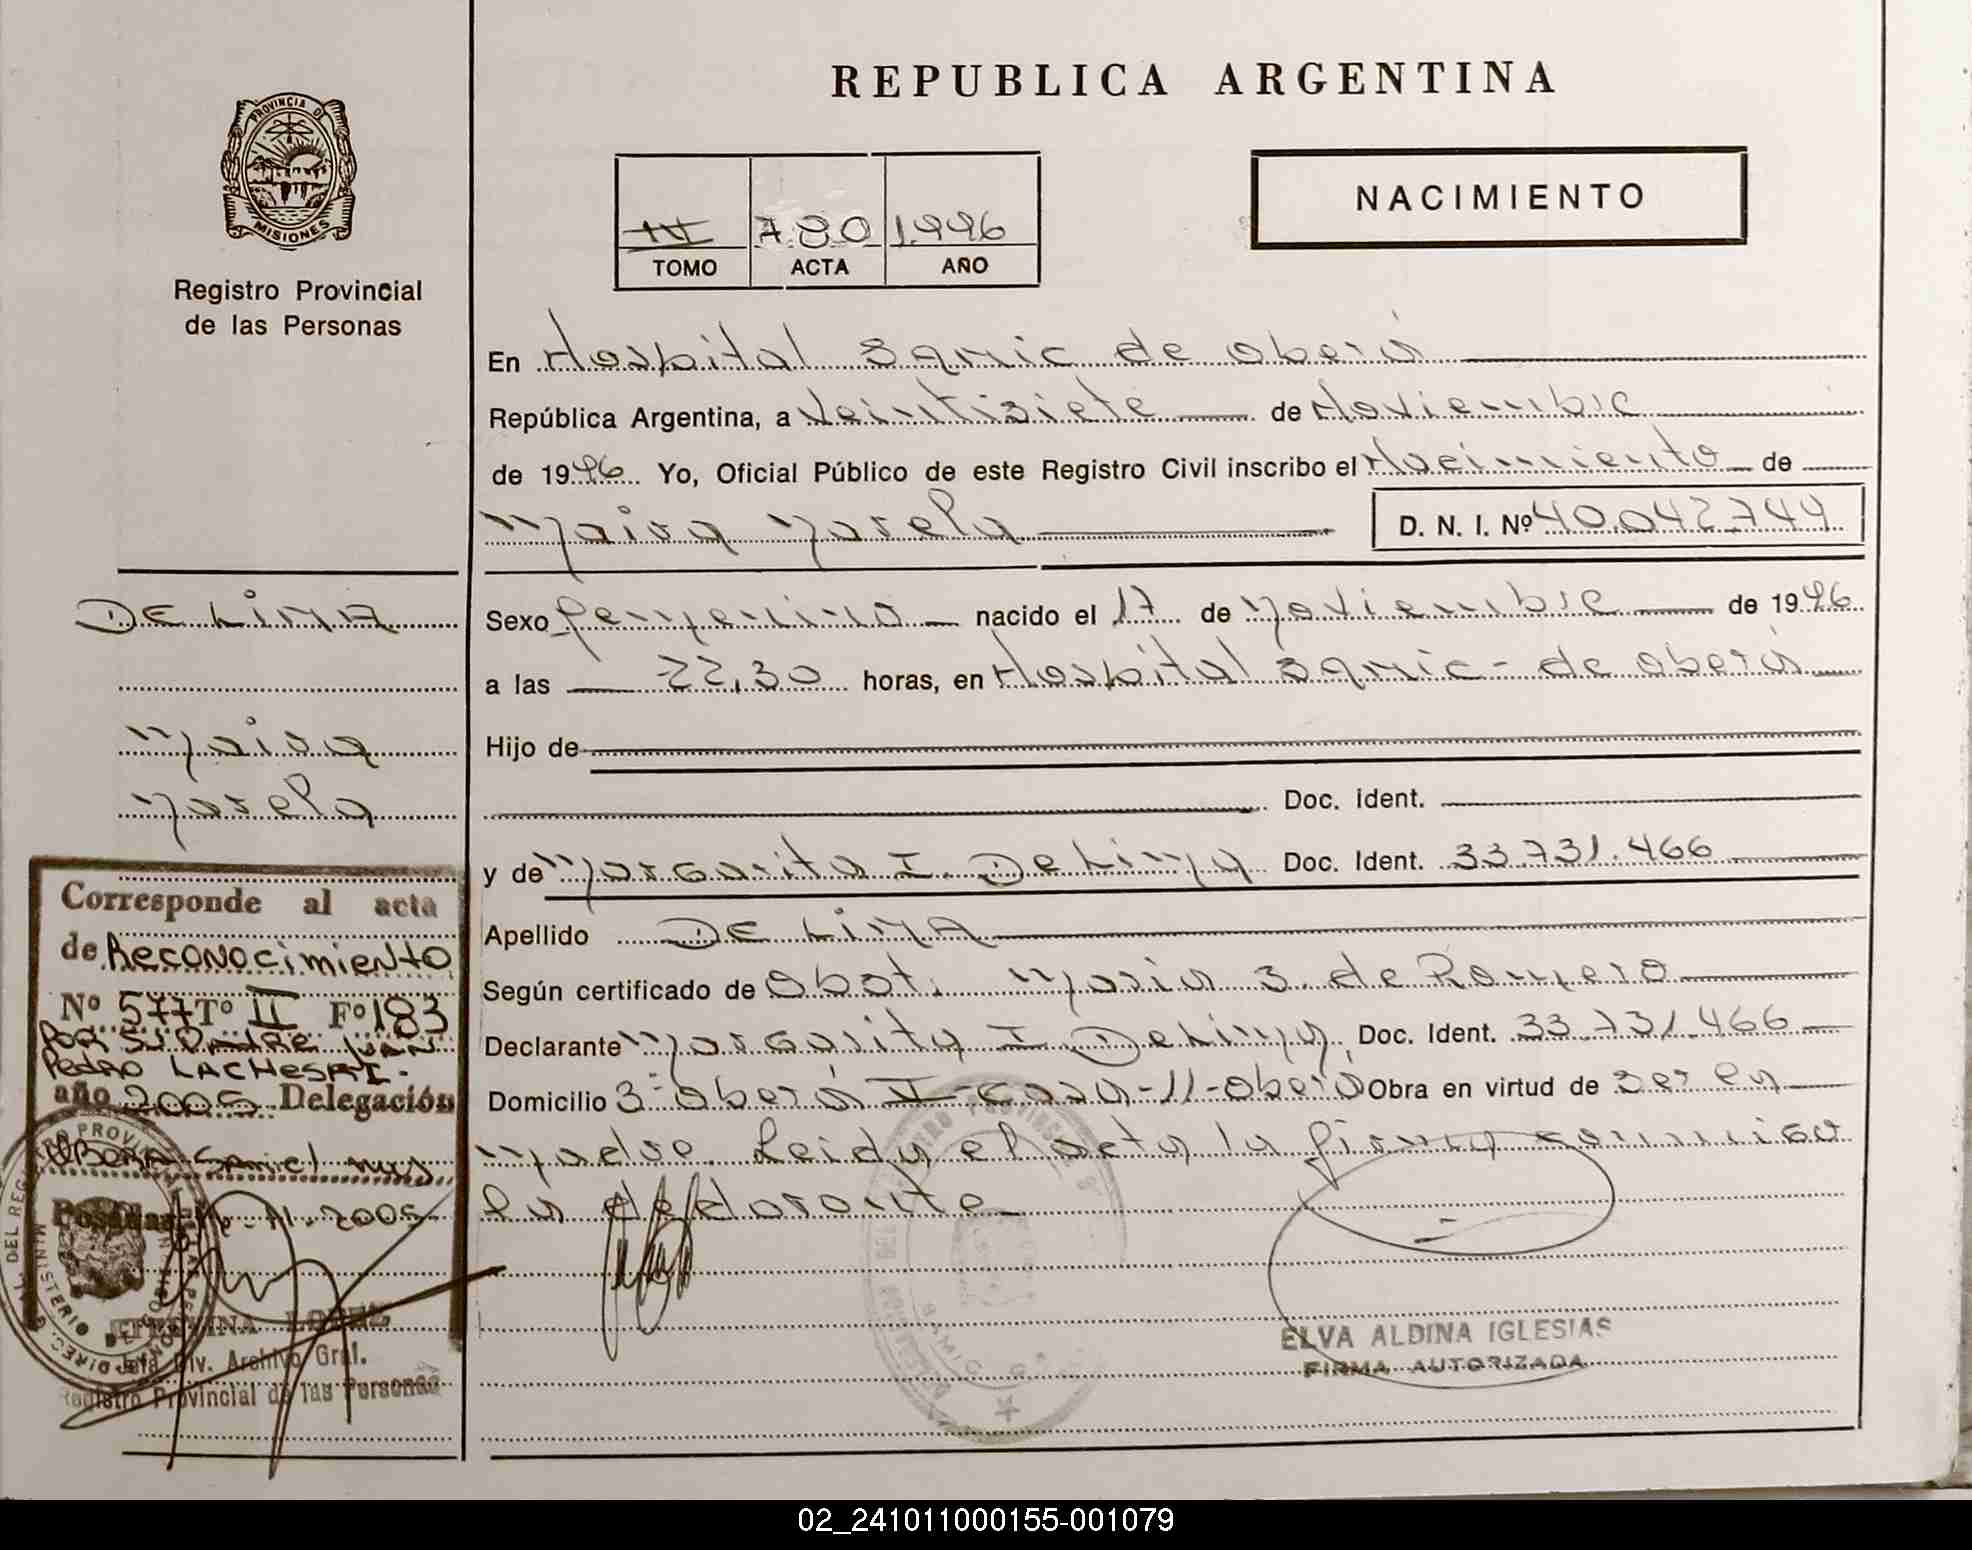 REPUBLICA ARGENTINA
PROVINCIA DE
MISIONES
Registro Provincial
de las Personas
NACIMIENTO
780 1996
TOMO ACTA AÑO
En Hospital Samic de Oberá
República Argentina, a Veintisiete de Noviembre
de 1996 Yo, Oficial Público de este Registro Civil inscribo el Nacimiento de
Maira Marela
D. N. I. Nº 40.042.744
DE LIMA
Maira
Marela
Sexo femenino nacido el 17 de Noviembre de 1996
a las 22,30 horas, en Hospital Samic - de Oberá
Hijo de
Doc. Ident.
y de Margarita I. De Lima Doc. Ident. 33.731.466
Apellido DE LIMA
Según certificado de Obst. Maria S. de Romero
Declarante Margarita I De Lima Doc. Ident. 33.731.466
Domicilio 3- Oberá II - casa - 11 - Oberá Obra en virtud de ser la
Madre. Leida el acta la firma conmigo
la declarante
Corresponde al acta
de Reconocimiento
Nº 577 Tº II Fº 183
POR SU PADRE JUAN
Pedro LACHESKI.
año 2005 Delegación
OBERA Samic
Posadas, - 11 - 2005
LOPEZ
Jefa Div. Archivo Gral.
Registro Provincial de las Personas
ELVA ALDINA IGLESIAS
FIRMA AUTORIZADA
02_241011000155-001079